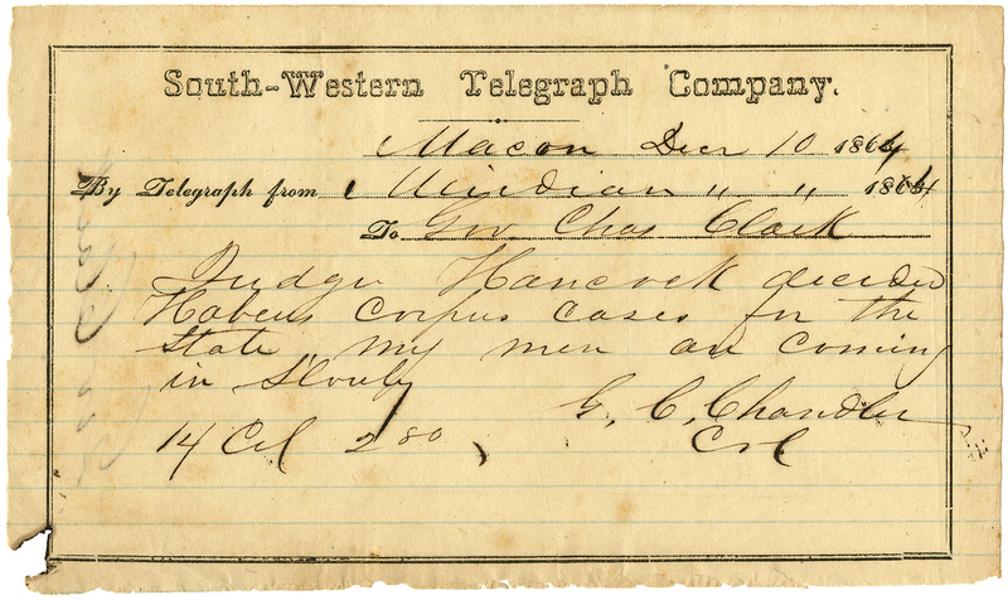 South-Western Telegraph Company.
Macon Decr 10 1864
By Telegraph from Meridian " " 1864
To Gov Chas Clark
Judge Hancock decided
Habeus Corpus Cases for the
State, my men are coming
in Slowly
G. C. Chandler
14 Col 2 80 Col